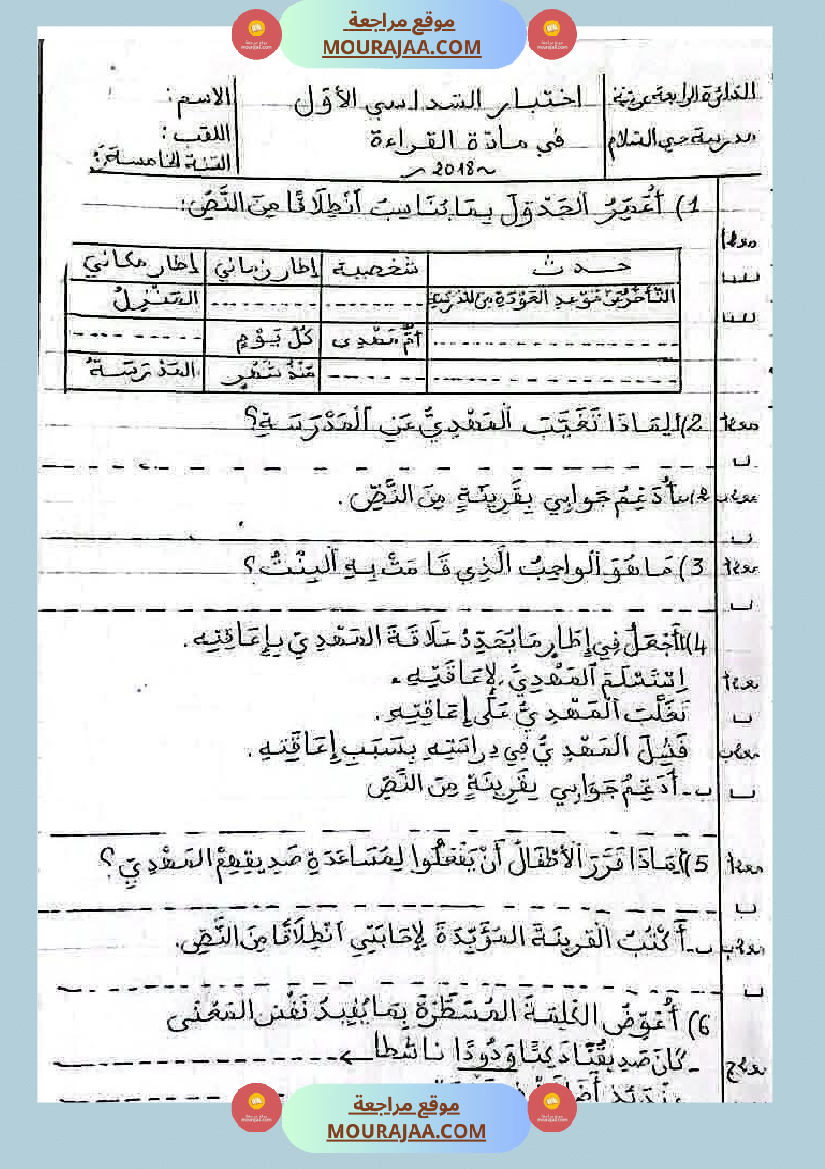 موقع مراجعة
MOURAJAA.COM
اختبار السداسي الأول
في مادّة القراءة
~ 2018 ~
الاسم:
اللقب:
السنة الخامسة
1) أُعَمِّرُ الْجَدْوَلَ بِمَا يُنَاسِبُ انْطِلَاقًا مِنَ النَّصِّ:
حدث شخصية إطار زماني إطار مكاني
التَّأَخُّرُ عَنْ مَوْعِدِ الْعَوْدَةِ مِنَ الْمَدْرَسَةِ الْمَنْزِلُ
أُمُّ مَهْدِي كُلَّ يَوْمٍ
مُنْذُ شَهْرٍ الْمَدْرَسَةُ
2) أ لِمَاذَا تَغَيَّبَ الْمَهْدِيُّ عَنِ الْمَدْرَسَةِ؟
أُدَعِّمُ جَوَابِي بِقَرِينَةٍ مِنَ النَّصِّ.
3) مَا هُوَ الْوَاجِبُ الَّذِي قَامَتْ بِهِ الْبِنْتُ؟
4) أ أَجْعَلُ فِي إِطَارٍ مَا يُحَدِّدُ عَلَاقَةَ الْمَهْدِيِّ بِإِعَاقَتِهِ.
اِسْتَسْلَمَ الْمَهْدِيُّ لِإِعَاقَتِهِ.
تَغَلَّبَ الْمَهْدِيُّ عَلَى إِعَاقَتِهِ.
فَشِلَ الْمَهْدِيُّ فِي دِرَاسَتِهِ بِسَبَبِ إِعَاقَتِهِ.
ب - أُدَعِّمُ جَوَابِي بِقَرِينَةٍ مِنَ النَّصِّ
5) أ لِمَاذَا قَرَّرَ الْأَطْفَالُ أَنْ يَفْعَلُوا لِمُسَاعَدَةِ صَدِيقِهِمْ الْمَهْدِيِّ؟
ب - أَكْتُبُ الْقَرِينَةَ الْمُؤَيِّدَةَ لِإِجَابَتِي انْطِلَاقًا مِنَ النَّصِّ.
6) أُعَوِّضُ الْكَلِمَةَ الْمُسَطَّرَةَ بِمَا يُفِيدُ نَفْسَ الْمَعْنَى
- كَانَ صَدِيقُنَا وَدُودًا نَاشِطًا
موقع مراجعة
MOURAJAA.COM